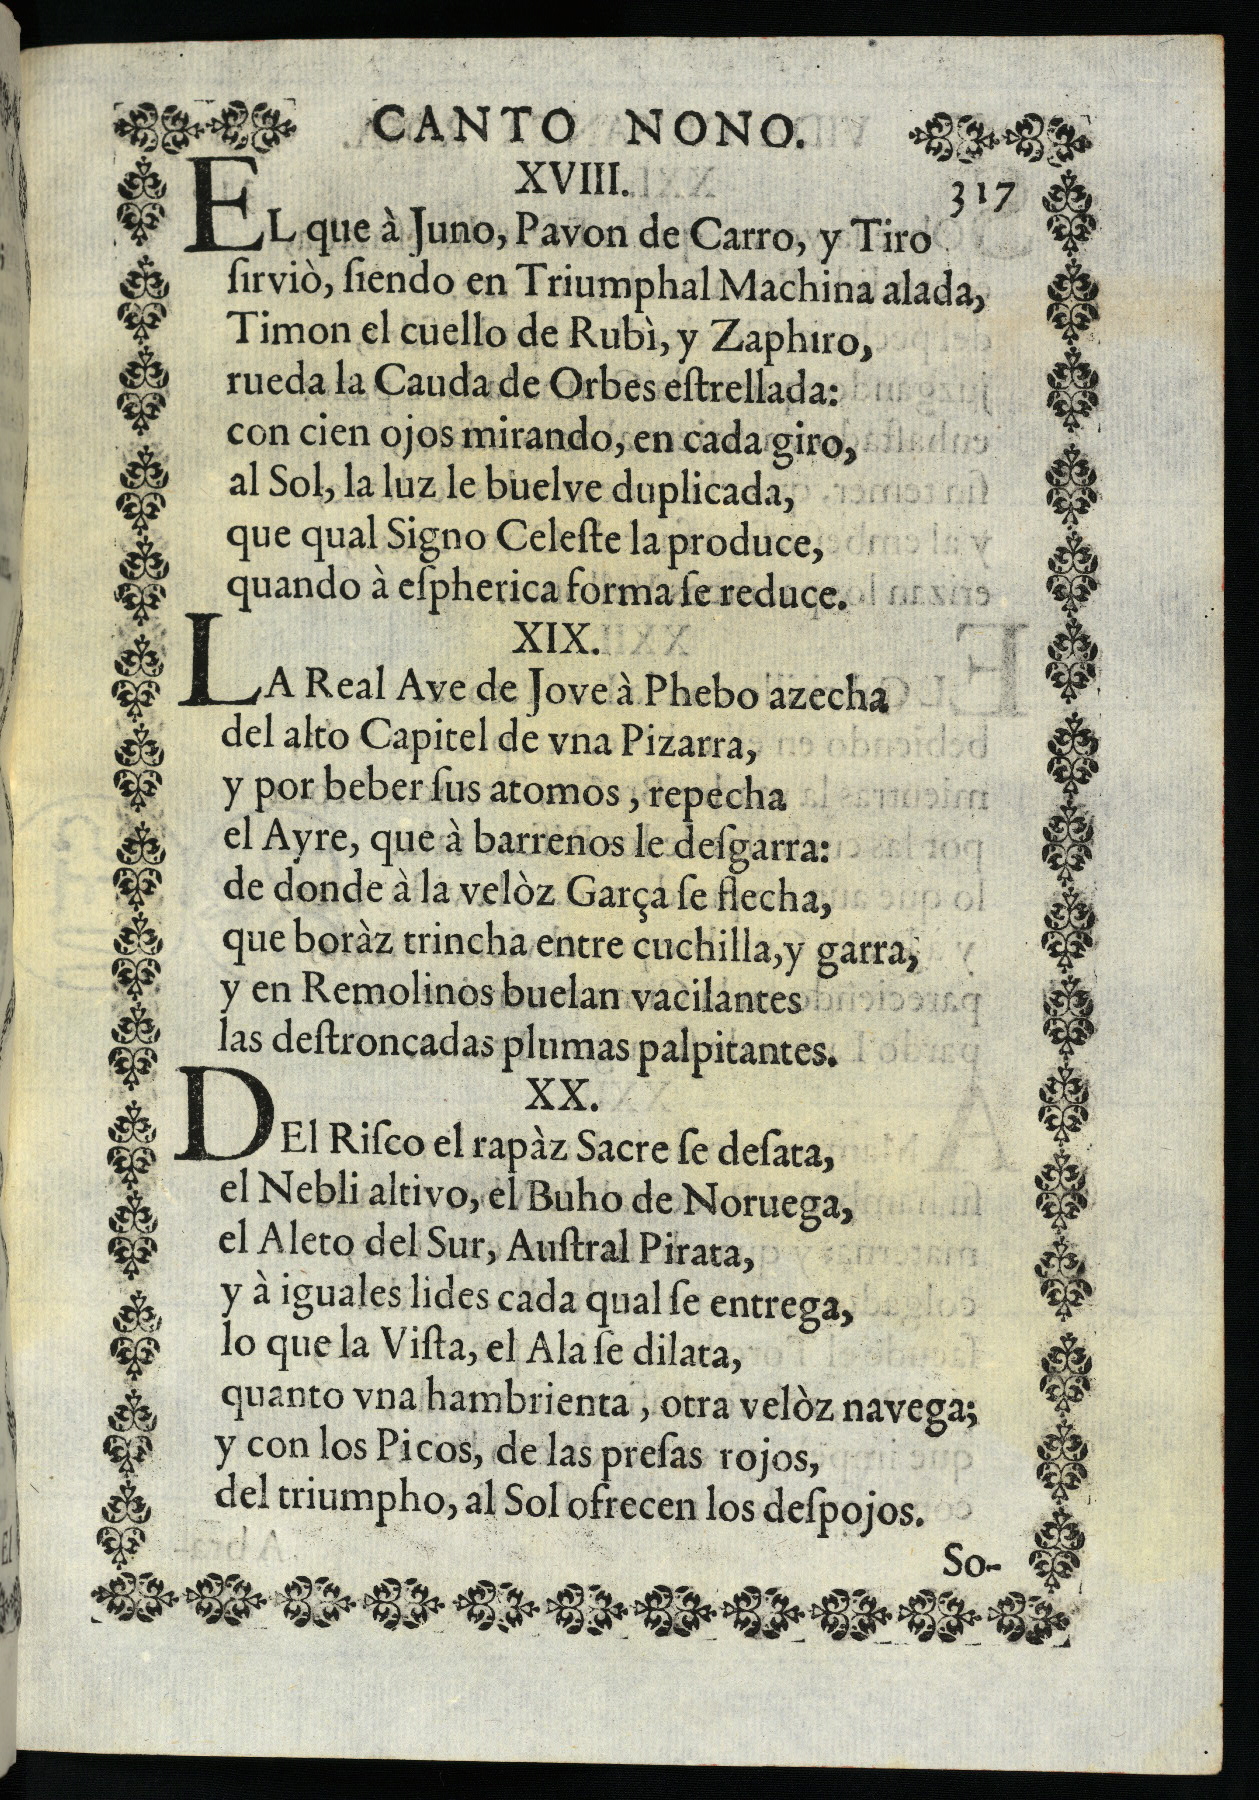 CANTO NONO.
317
XVIII.
EL que à Juno, Pavon de Carro, y Tiro
ſirviò, ſiendo en Triumphal Machina alada,
Timon el cuello de Rubì, y Zaphiro,
rueda la Cauda de Orbes eſtrellada:
con cien ojos mirando, en cada giro,
al Sol, la luz le buelve duplicada,
que qual Signo Celeſte la produce,
quando à eſpherica forma ſe reduce.
XIX.
LA Real Ave de Jove à Phebo azecha
del alto Capitel de vna Pizarra,
y por beber ſus atomos, repecha
el Ayre, que à barrenos le deſgarra:
de donde à la velòz Garça ſe flecha,
que boràz trincha entre cuchilla, y garra,
y en Remolinos buelan vacilantes
las deſtroncadas plumas palpitantes.
XX.
DEl Riſco el rapàz Sacre ſe deſata,
el Nebli altivo, el Buho de Noruega,
el Aleto del Sur, Auſtral Pirata,
y à iguales lides cada qual ſe entrega,
lo que la Viſta, el Ala ſe dilata,
quanto vna hambrienta, otra velòz navega;
y con los Picos, de las preſas rojos,
del triumpho, al Sol ofrecen los deſpojos.
So-